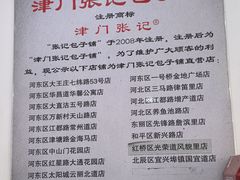 津门张记包子®
注册商标
津门张记®
"张记包子铺"于2008年注册，后为
"津门张记包子铺"，为了维护广大顾客的利
益，现公示以下店铺为津门张记包子铺直营店：
河东区大王庄七纬路53号店
河东区华昌道华馨公寓店
河东区真直沽五号路店
河东区万新村天山路店
河东区江都路常州道店
河东区津塘路金海马店
河东区中山门花园店
河东区红星路大通花园店
河东区太阳城云丽北道店
河东区一号桥金地广场店
河北区三马路律笛里店
河北区江都路增产道店
河北区养鱼池路店
东丽区先锋路詹滨里店
和平区新兴路店
红桥区光荣道风貌里店
北辰区宜兴埠镇国宜道店